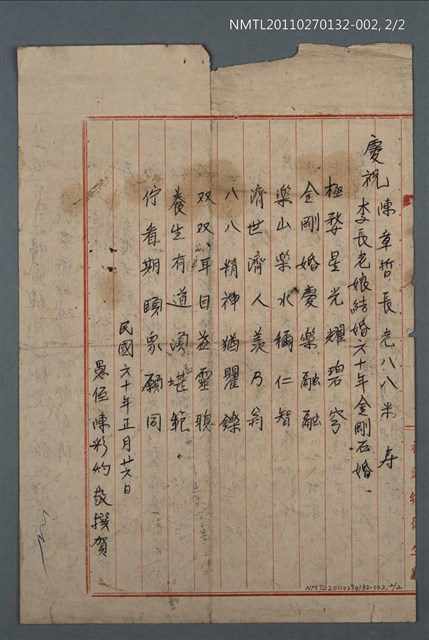 NMTL20110270132-002, 2/2
慶祝陳章哲長老八八米寿
李長老娘結婚六十年金剛石婚.
極婺星光耀碧穹
金剛婚慶樂融融
樂山樂水稱仁智
濟世濟人羨乃翁
八八精神猶矍鑠
双双耳目益靈聰
養生有道須堪範
佇看期頤眾願同
民國六十年正月廿六日
愚侄陳彩約敬撰賀
NMTL20110270132-002, 2/2